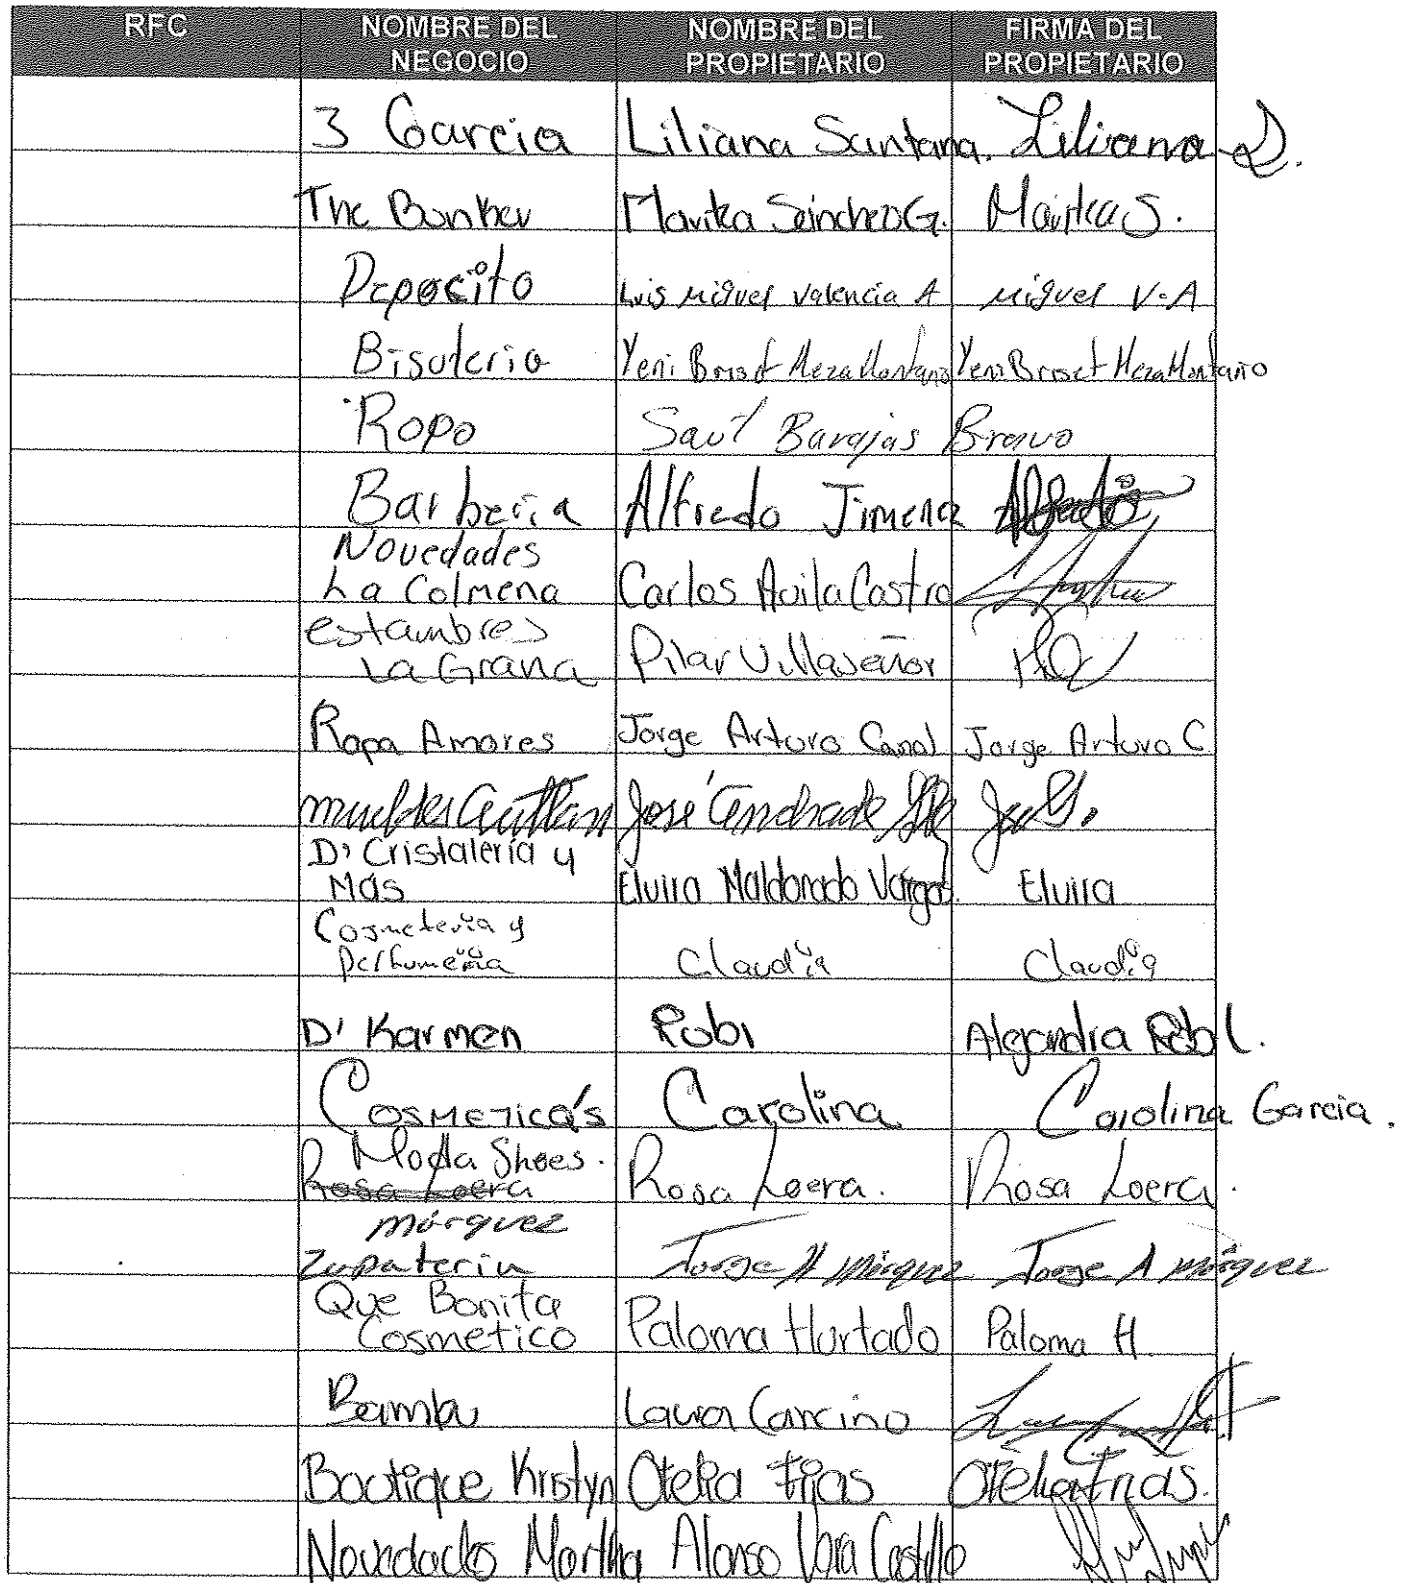 RFC NOMBRE DEL NEGOCIO NOMBRE DEL PROPIETARIO FIRMA DEL PROPIETARIO
3 Garcia Liliana Santana. Liliana S.
The Bunker Marika Sánchez G. Marika S.
Deposito Luis Miguel Valencia A Miguel V-A
Bisuteria Yeni Meza Montaño Yeni Meza Montaño
Ropa Saúl Barajas Bravo
Barberia Alfredo Jimenez
Novedades
La Colmena Carlos Avila Castro
estambres
La Grana Pilar Villaseñor
Ropa Amores Jorge Arturo Canal Jorge Arturo C
muebles Autlan José Andrade
D' Cristalería y
Más Elvira Maldonado Vargas. Elvira
Cosmeteria y
Perfumeria Claudia Claudia
D' Karmen Robi Alejandra Robl.
Cosmetica's Carolina Carolina Garcia.
Moda Shoes.
Rosa Loera Rosa Loera. Rosa Loera.
Márquez
Zapateria Jorge A Márquez Jorge A Márquez
Que Bonita
Cosmetico Paloma Hurtado Paloma H.
Bambu Laura Cancino
Boutique Kristyn Otelia Frias Otelia Frias.
Novedades Martha Alonso Vera Castillo